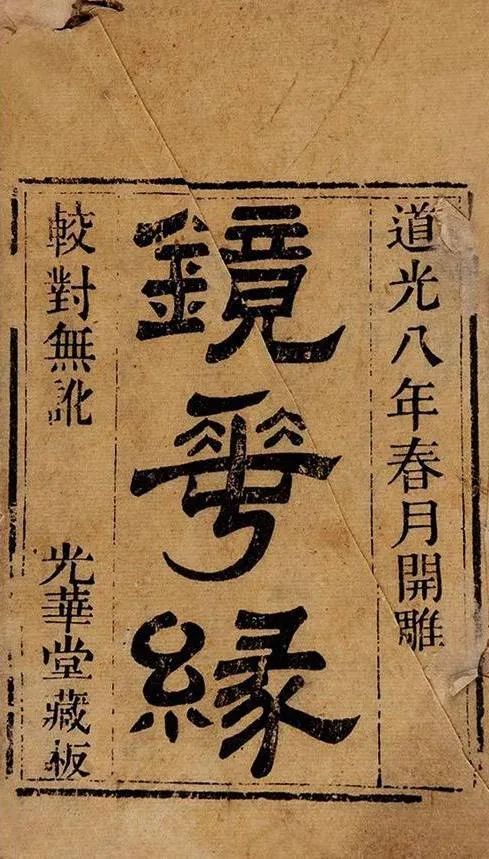 道光八年春月開雕
鏡花緣
較對無訛
光華堂藏板